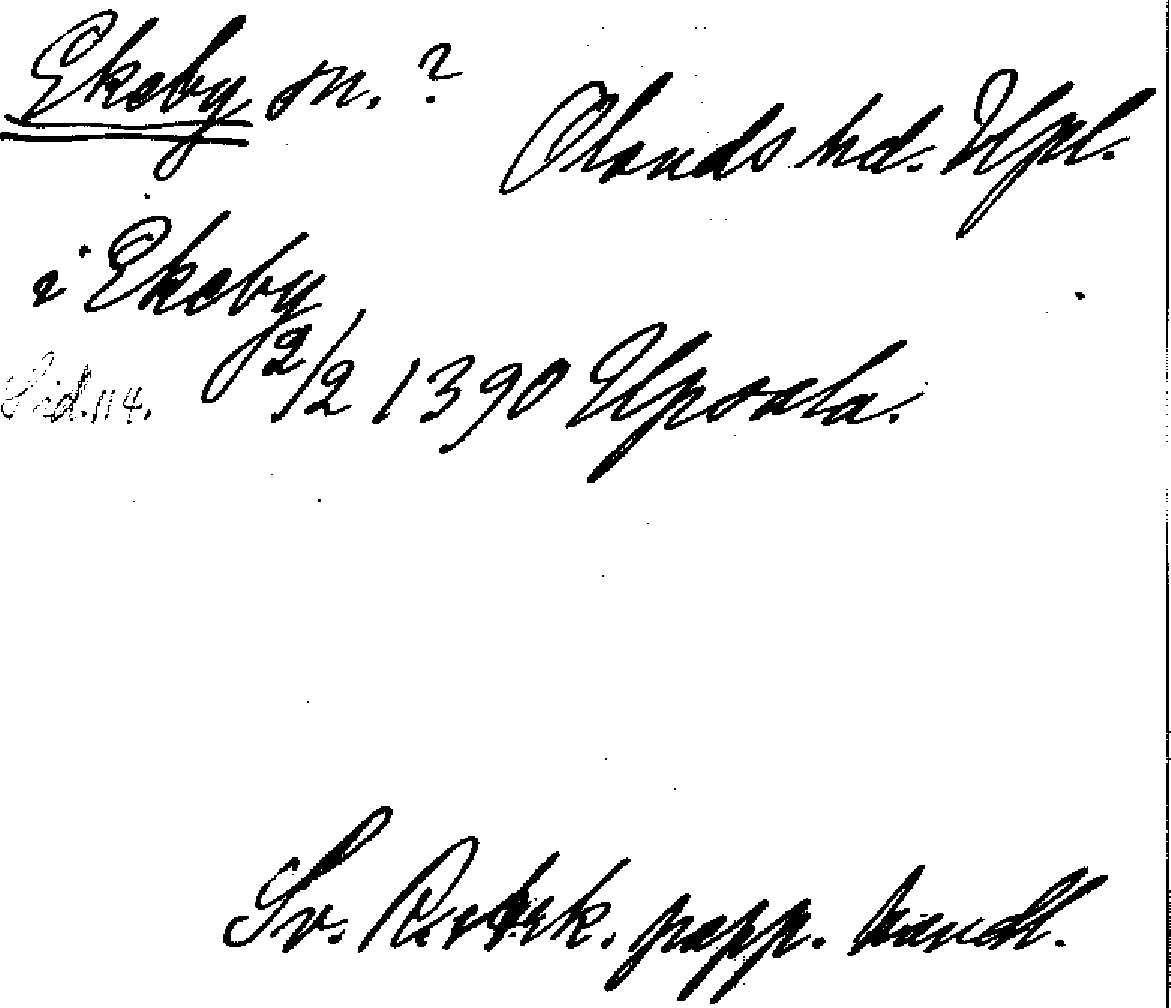 Ekeby sn. ?
Olands hd. Upl.
i Ekeby
2/2 1390 Upsala.
Sid. 114.
Sv. Riksark. papp. handl.